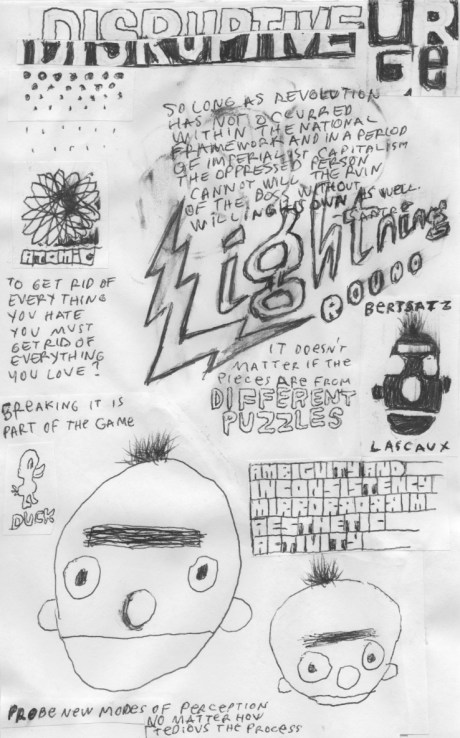 DISRUPTIVE URGE
SO LONG AS REVOLUTION
HAS NOT OCCURRED
WITHIN THE NATIONAL
FRAMEWORK AND IN A PERIOD
OF IMPERIALIST CAPITALISM
THE OPPRESSED PERSON
CANNOT WILL THE RUIN
OF THE BOSS WITHOUT
WILLING HIS OWN AS WELL.
- SARTRE
ATOMIC
Lightning
ROUND
TO GET RID OF
EVERYTHING
YOU HATE
YOU MUST
GET RID OF
EVERYTHING
YOU LOVE?
BERTSATZ
IT DOESN'T
MATTER IF THE
PIECES ARE FROM
DIFFERENT
PUZZLES
LASCAUX
BREAKING IT IS
PART OF THE GAME
DUCK
AMBIGUITY AND
INCONSISTENCY
PROBE NEW MODES OF PERCEPTION
NO MATTER HOW
TEDIOUS THE PROCESS